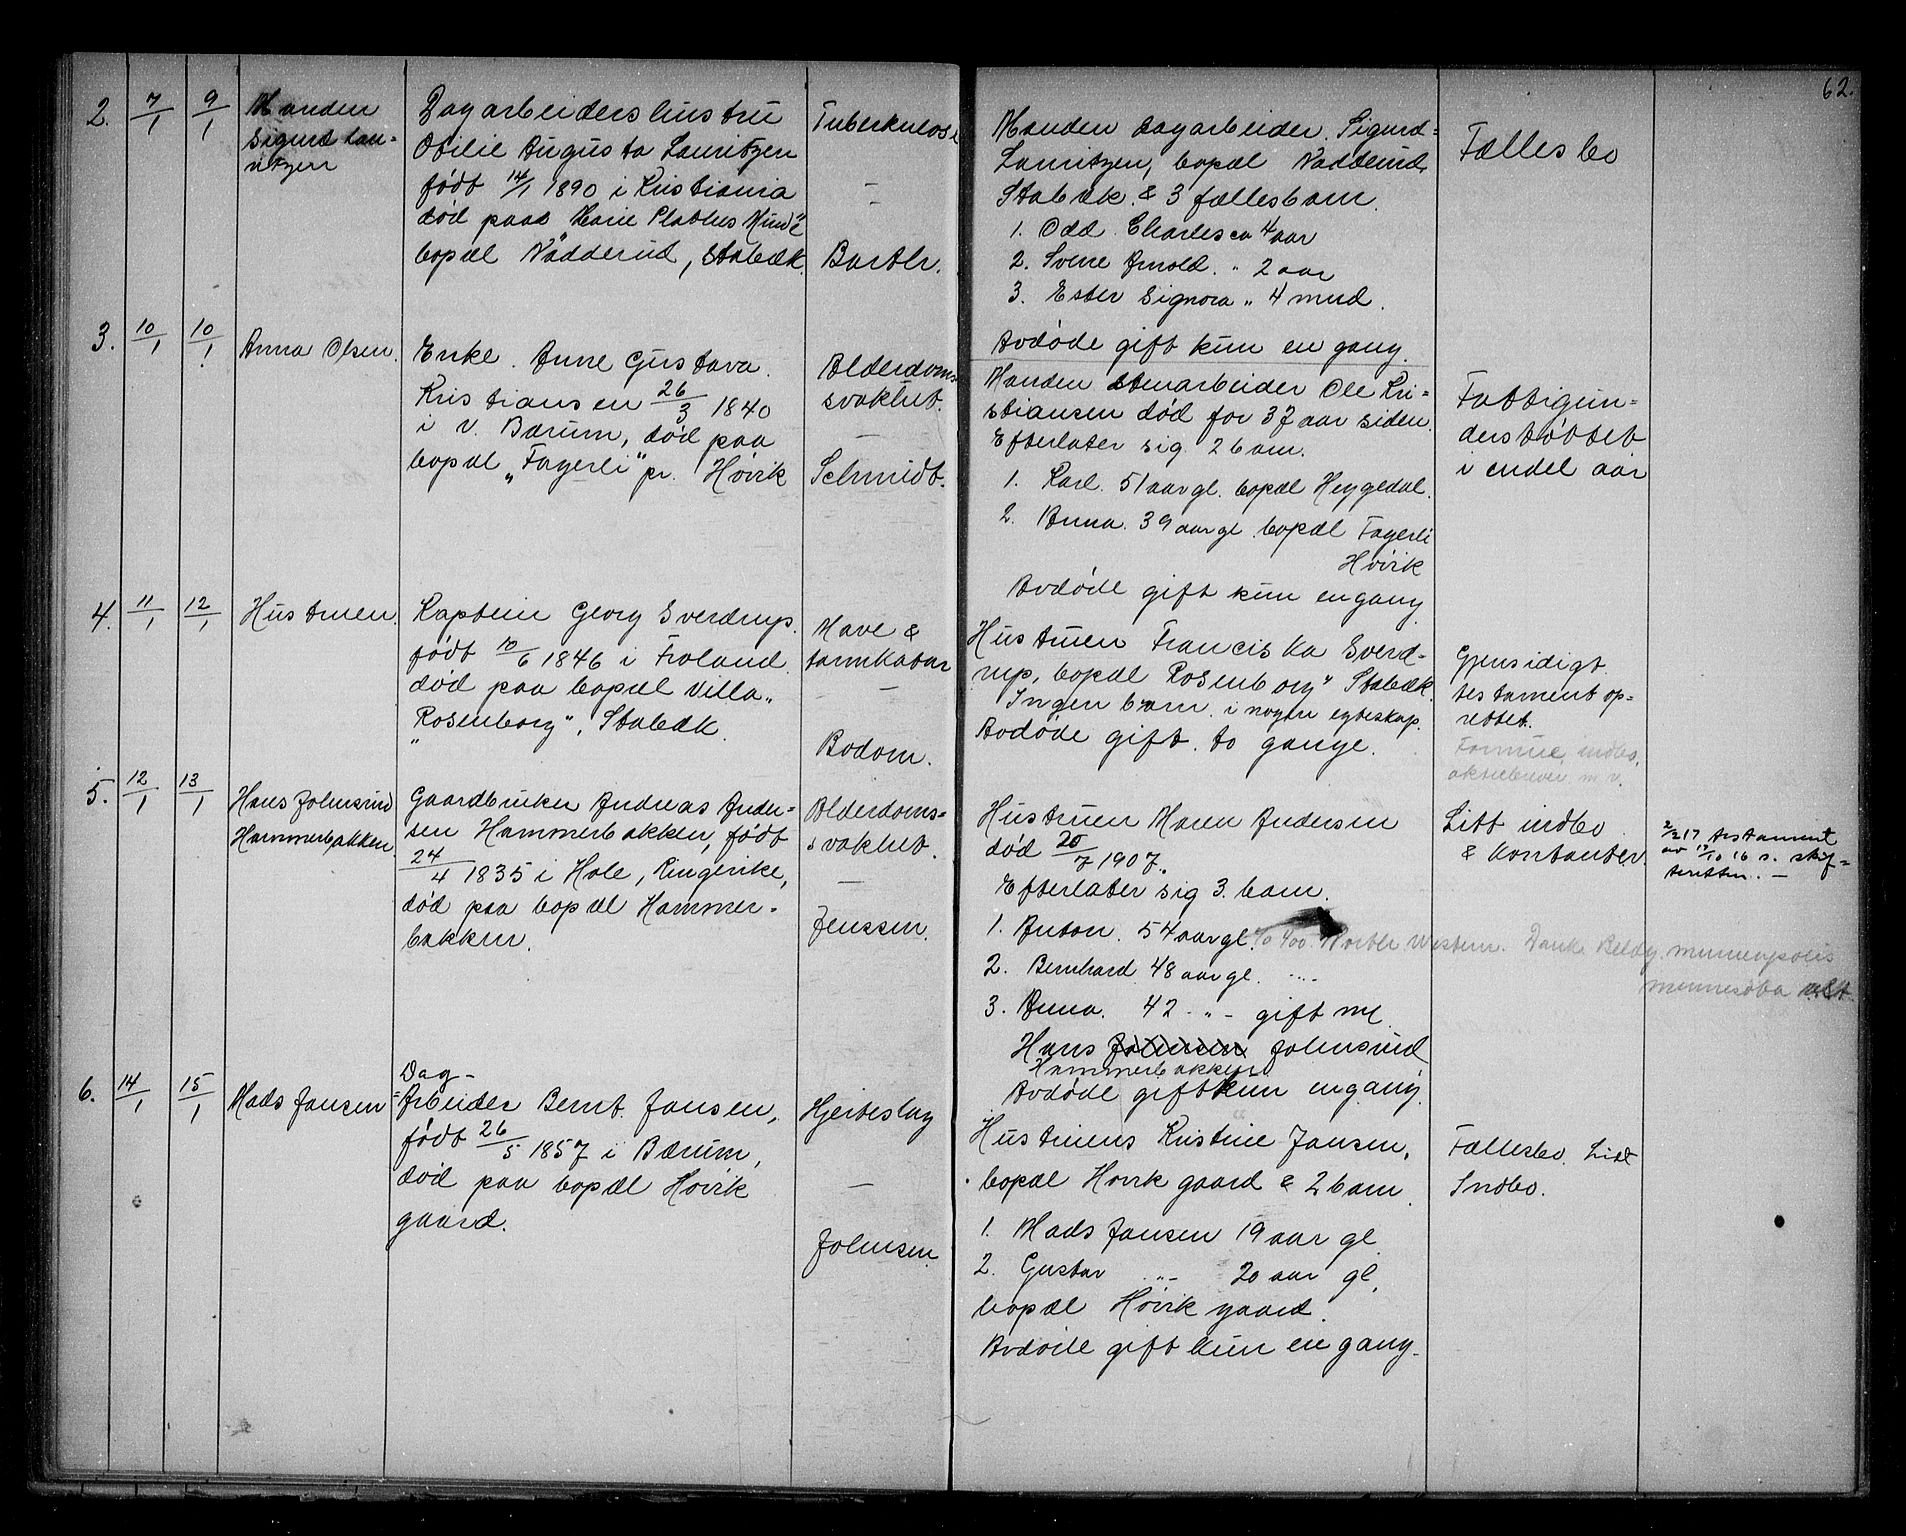 62.
2. 7/1 9/1
Manden
Sigurd Lau-
ritzen
Dagarbeiders hustru
Otilie Augusta Lauritzen
født 14/1 1890 i Kristiania
død paa Marie Plathes Mind?
bopæl Nadderud, Stabæk.
Tuberkulose
—
—
Barth.
Manden dagarbeider Sigurd
Lauritzen, bopæl Nadderud,
Stabæk & 3 fællesbarn.
1. Odd Charles ca 4 aar
2. Svene Arnold. " 2 aar
3. Ester Signora " 4 mnd.
Avdøde gift kun en gang.
Fællesbo
3. 10/1 10/1
Anna Olsen.
Enke. Anne Gustava.
Kristiansen 26/3 1840
i V. Bærum, død paa
bopæl „Fagerli" pr. Høvik
Alderdoms-
svakhet.
—
Schmidt.
Manden stenarbeider Ole Kri-
stiansen død for 37 aar siden.
Efterlater sig 2 barn.
1. Karl. 51 aar gl. bopæl Heggedal.
2. Anna. 39 aar gl. bopæl Fagerli
Høvik
Avdøde gift kun en gang
Fattigun-
derstøttet
i endel aar
4. 11/1 12/1
Hustruen.
Kaptein Georg Sverdrup.
født 10/6 1846 i Froland
død paa bopæl Villa
„Rosenborg", Stabæk.
Mave &
tarmkatar
—
Bodom.
Hustruen Franciska Sverd-
rup, bopæl Rosenborg" Stabæk.
Ingen barn i nogen egteskap.
Avdøde gift to gange.
Gjensidigt
testament op-
rettet.
Formue, indbo,
aktiebrever m.v.
5. 12/1 13/1
Hans Johnsrud
Hammerbakken
Gaardbruker Andreas Ander-
sen Hammerbakken, født
24/4 1835 i Hole, Ringerike,
død paa bopæl Hammer-
bakken.
Alderdoms-
svakhet.
—
Jenssen.
Hustruen Maren Andersen
død 25/7 1907.
Efterlater sig 3 barn.
1. Anton. 54 aar gl. c/o 400. North Western. Bank Beldg. minneapolis
minnesota
2. Bernhard 48 aar gl. ----
3. Anna. 42 - " - gift m/
Hans Johnsen Johnsrud
Hammerbakken
Avdøde gift kun en gang.
Litt indbo
& kontanter.
2/2 17 testament
av 17/10 16 s. skif-
teretten. —
6. 14/1 15/1
Mads Jansen
Dag-
Arbeider Bernt Jansen,
født 26/5 1857 i Bærum,
død paa bopæl Høvik
gaard.
Hjerteslag
—
Johnsen.
Hustruens Kristine Jansen,
bopæl Høvik gaard & 2 barn
1. Mads Jansen 19 aar gl
2. Gustav - " - 20 aar gl.
bopæl Høvik gaard.
Avdøde gift kun en gang.
Fællesbo. Lidt
Indbo.